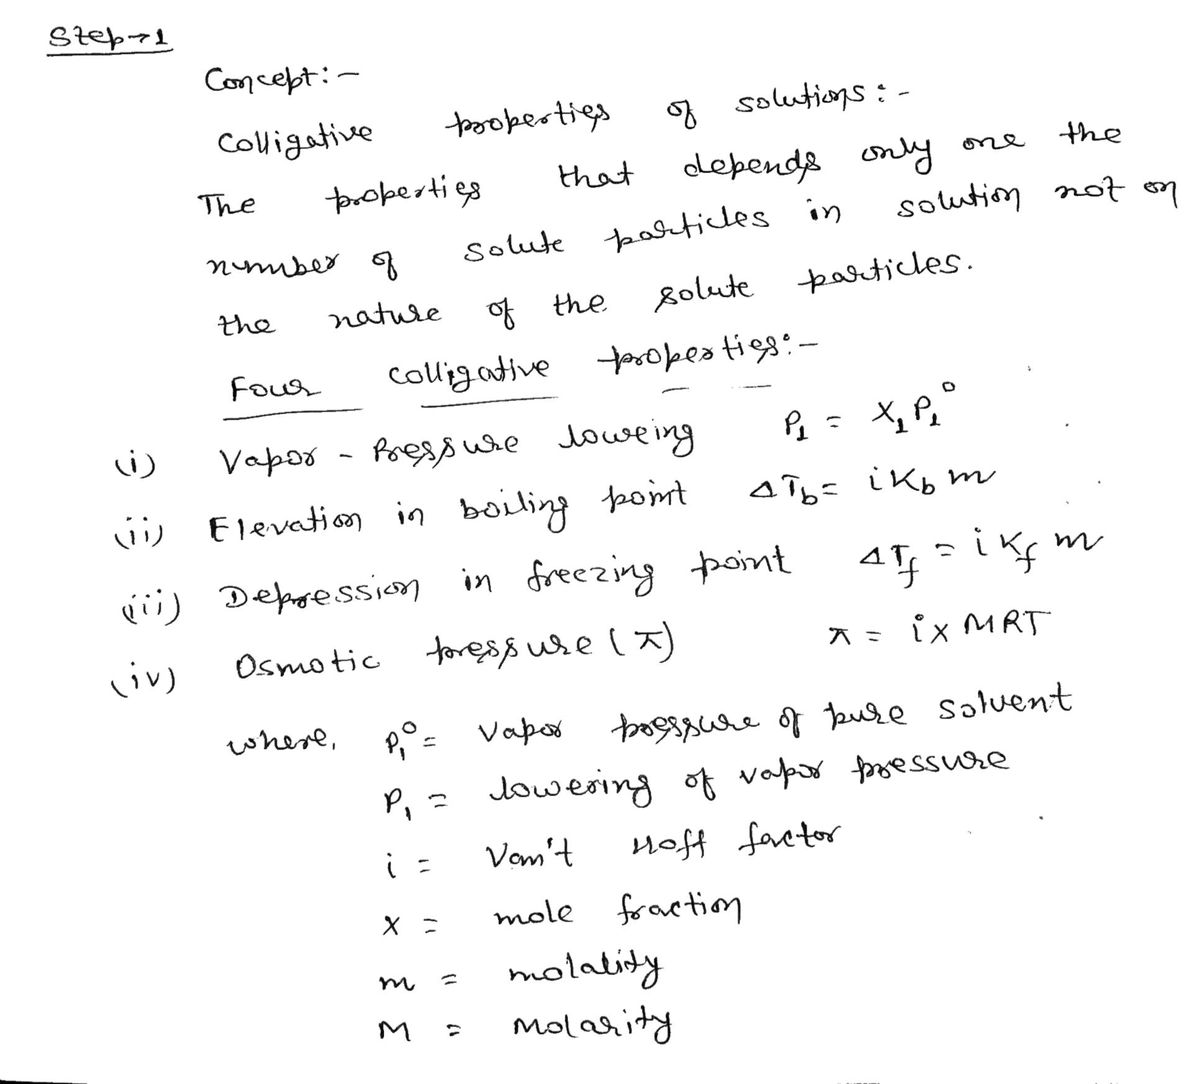 Step→1
Concept:-
Colligative properties of solutions:-
The properties that depends only one the
number of solute particles in solution not on
the nature of the solute particles.
Four colligative properties:-
(i) Vapor - Pressure loweing P₁ = X₁P₁⁰
(ii) Elevation in boiling point ΔT_b = i K_b m
(iii) Depression in freezing point ΔT_f = i K_f m
(iv) Osmotic pressure (π) π = i x MRT
where, P₁⁰ = Vapor pressure of pure solvent
P₁ = lowering of vapor pressure
i = Van't Hoff factor
x = mole fraction
m = molality
M = Molarity